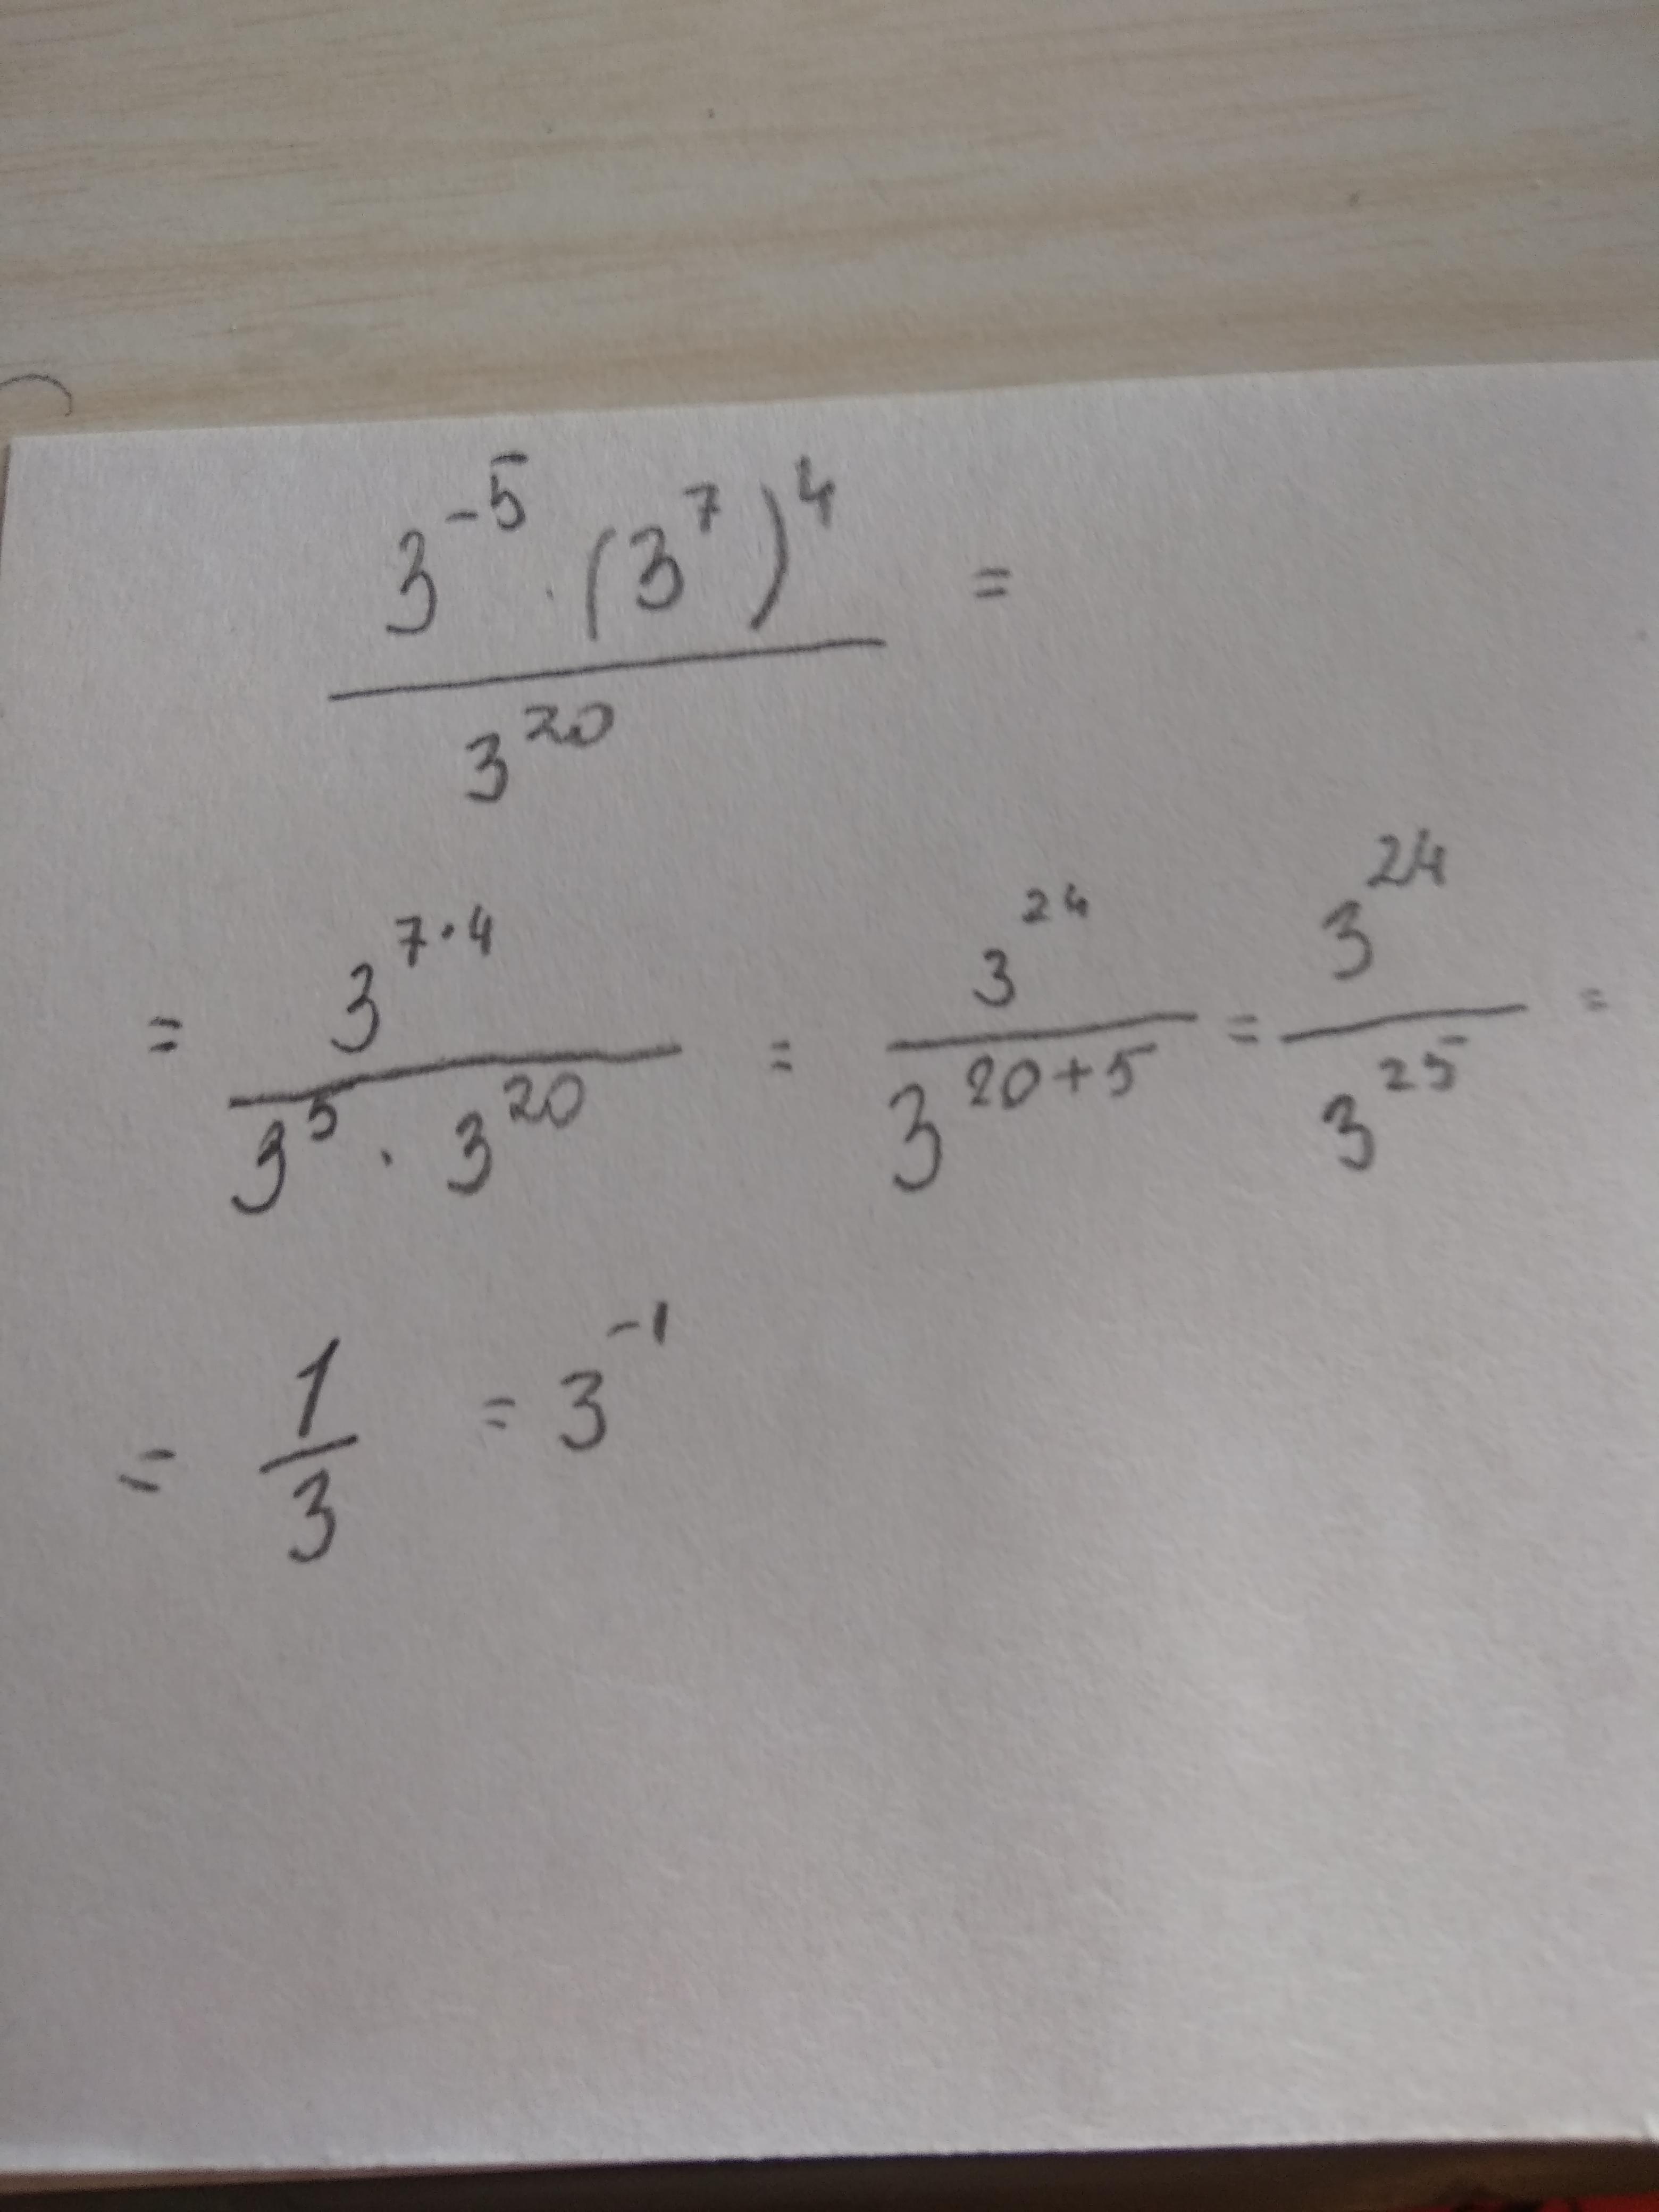 3^-5 · (3^7)^4 / 3^20 =
= 3^7·4 / 3^5 · 3^20 = 3^24 / 3^20+5 = 3^24 / 3^25 =
= 1/3 = 3^-1